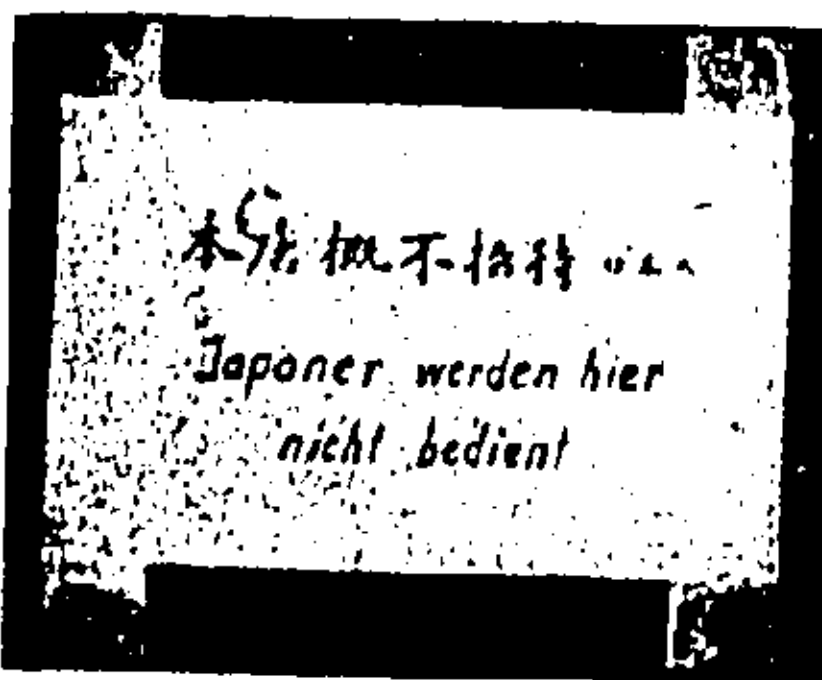 本店概不招待
Japaner werden hier
nicht bedient